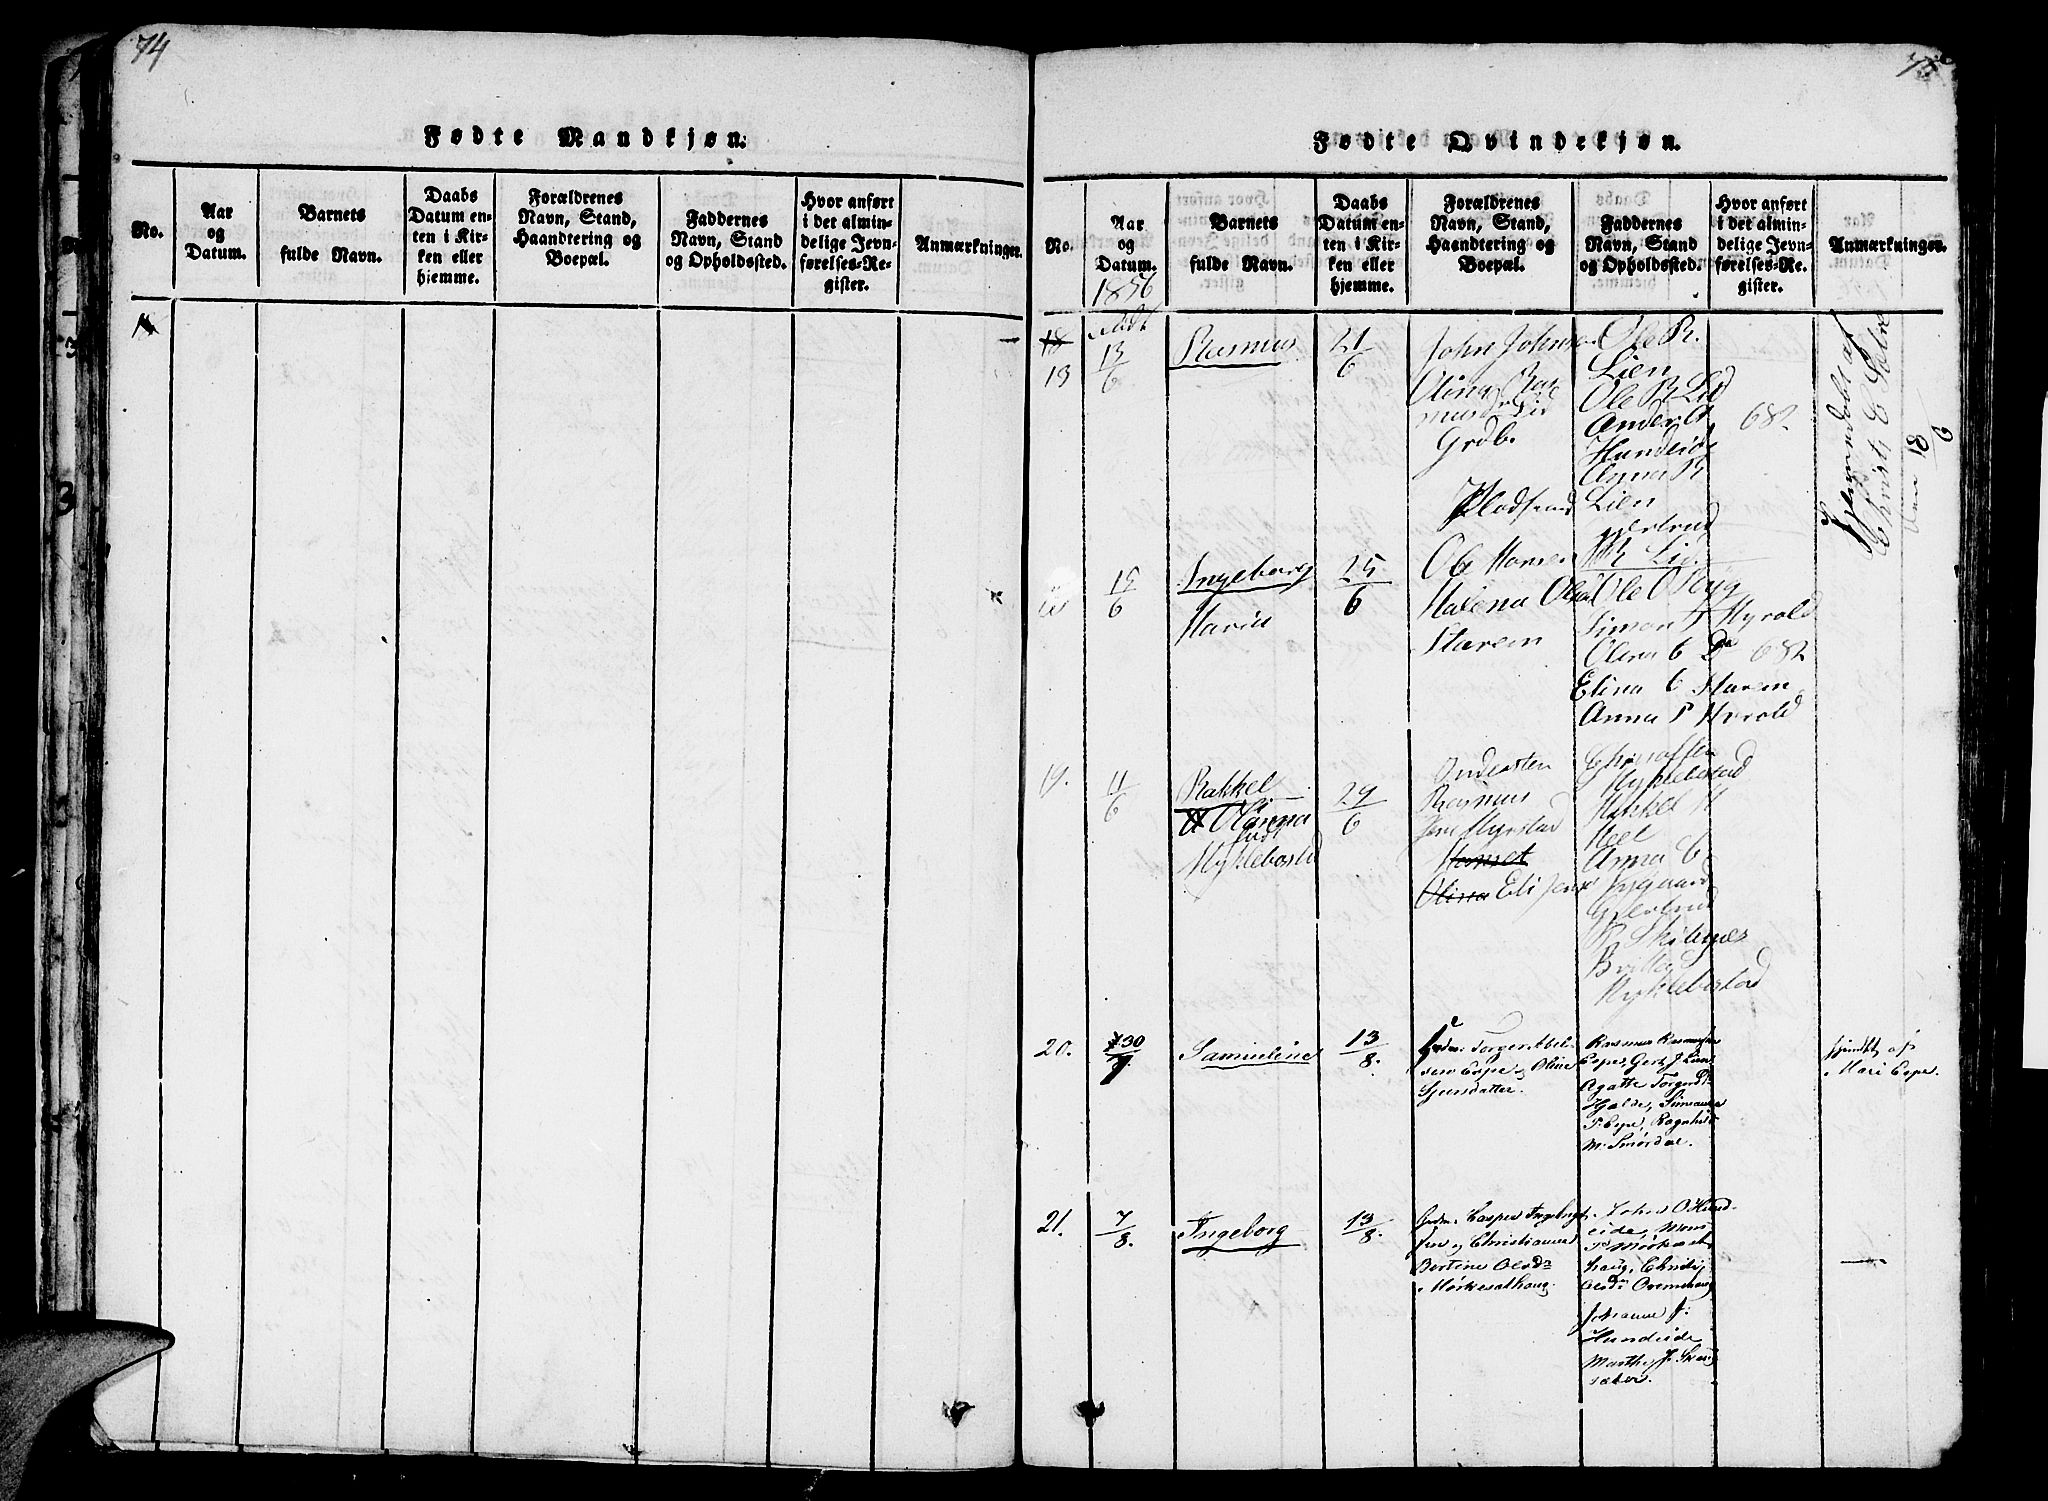 74
Fødte Mandkjøn.
No.
Aar
og
Datum.
Barnets
fulde Navn.
Daabs
Datum en-
ten i Kir-
ken eller
hjemme.
Forældrenes
Navn, Stand,
Haandtering og
Boepæl.
Faddernes
Navn, Stand
og Opholdssted.
Hvor anført
i det almin-
delige Jevn-
førelses-Re-
gister.
Anmærkninger.
Fødte Qvindekjøn.
No.
Aar
og
Datum.
Barnets
fulde Navn.
Daabs
Datum en-
ten i Kir-
ken eller
hjemme.
Forældrenes
Navn, Stand,
Haandtering og
Boepæl.
Faddernes
Navn, Stand
og Opholdssted.
Hvor anført
i det almin-
delige Jevn-
førelses-Re-
gister.
Anmærkninger.
1856
18
13
6
Rasmus
21
6
John Johnson
Olina Ras
Grdb.
Ole R.
Lien
Ole R Lid
Ander A
Hundeide
Anna R
Lien
682
Hjemmedøbt af
18
6
15
6
Ingeborg
Maria
25
6
Ole Hansen
Malena Olsd
Starem
R Lid
Ole O Ryg
Simon J Myrold
Olina C Do 682
Elina C Starem
Anna P Myrold
19.
11
6
Rakkel
Olianna
Myklebostad
29
6
Rasmus
Jens Myrstad
Olina Eli Jens
Myklebostad
Mykkel M
Anna C
Nygaard
R Skibenes
Myklebostad
20.
30
7
Samueline
13
8.
Grdm. Torger Abel-
sen Espe og Oline
Sjursdatter.
Rasmus Rasmussen
Espe, Gert J. Lien
Agatte Torgersdr
Hjelde, Simeanna
T. Espe, Ragnhild
M. Smørdal.
hjmdbt af
Mari Espe.
21.
7
8.
Ingeborg
13
8.
Grdm. Casper Ingebrigt-
sen og Christianne
Bertine Olsdr
Mørkesathaug.
Johan O. Hund-
eide, Mons
P. Mørkesat
haug, Christi
Olsdr Ovrenhaug
Johanne J.
Hundeide
Marthe J. Skaug
sæter.